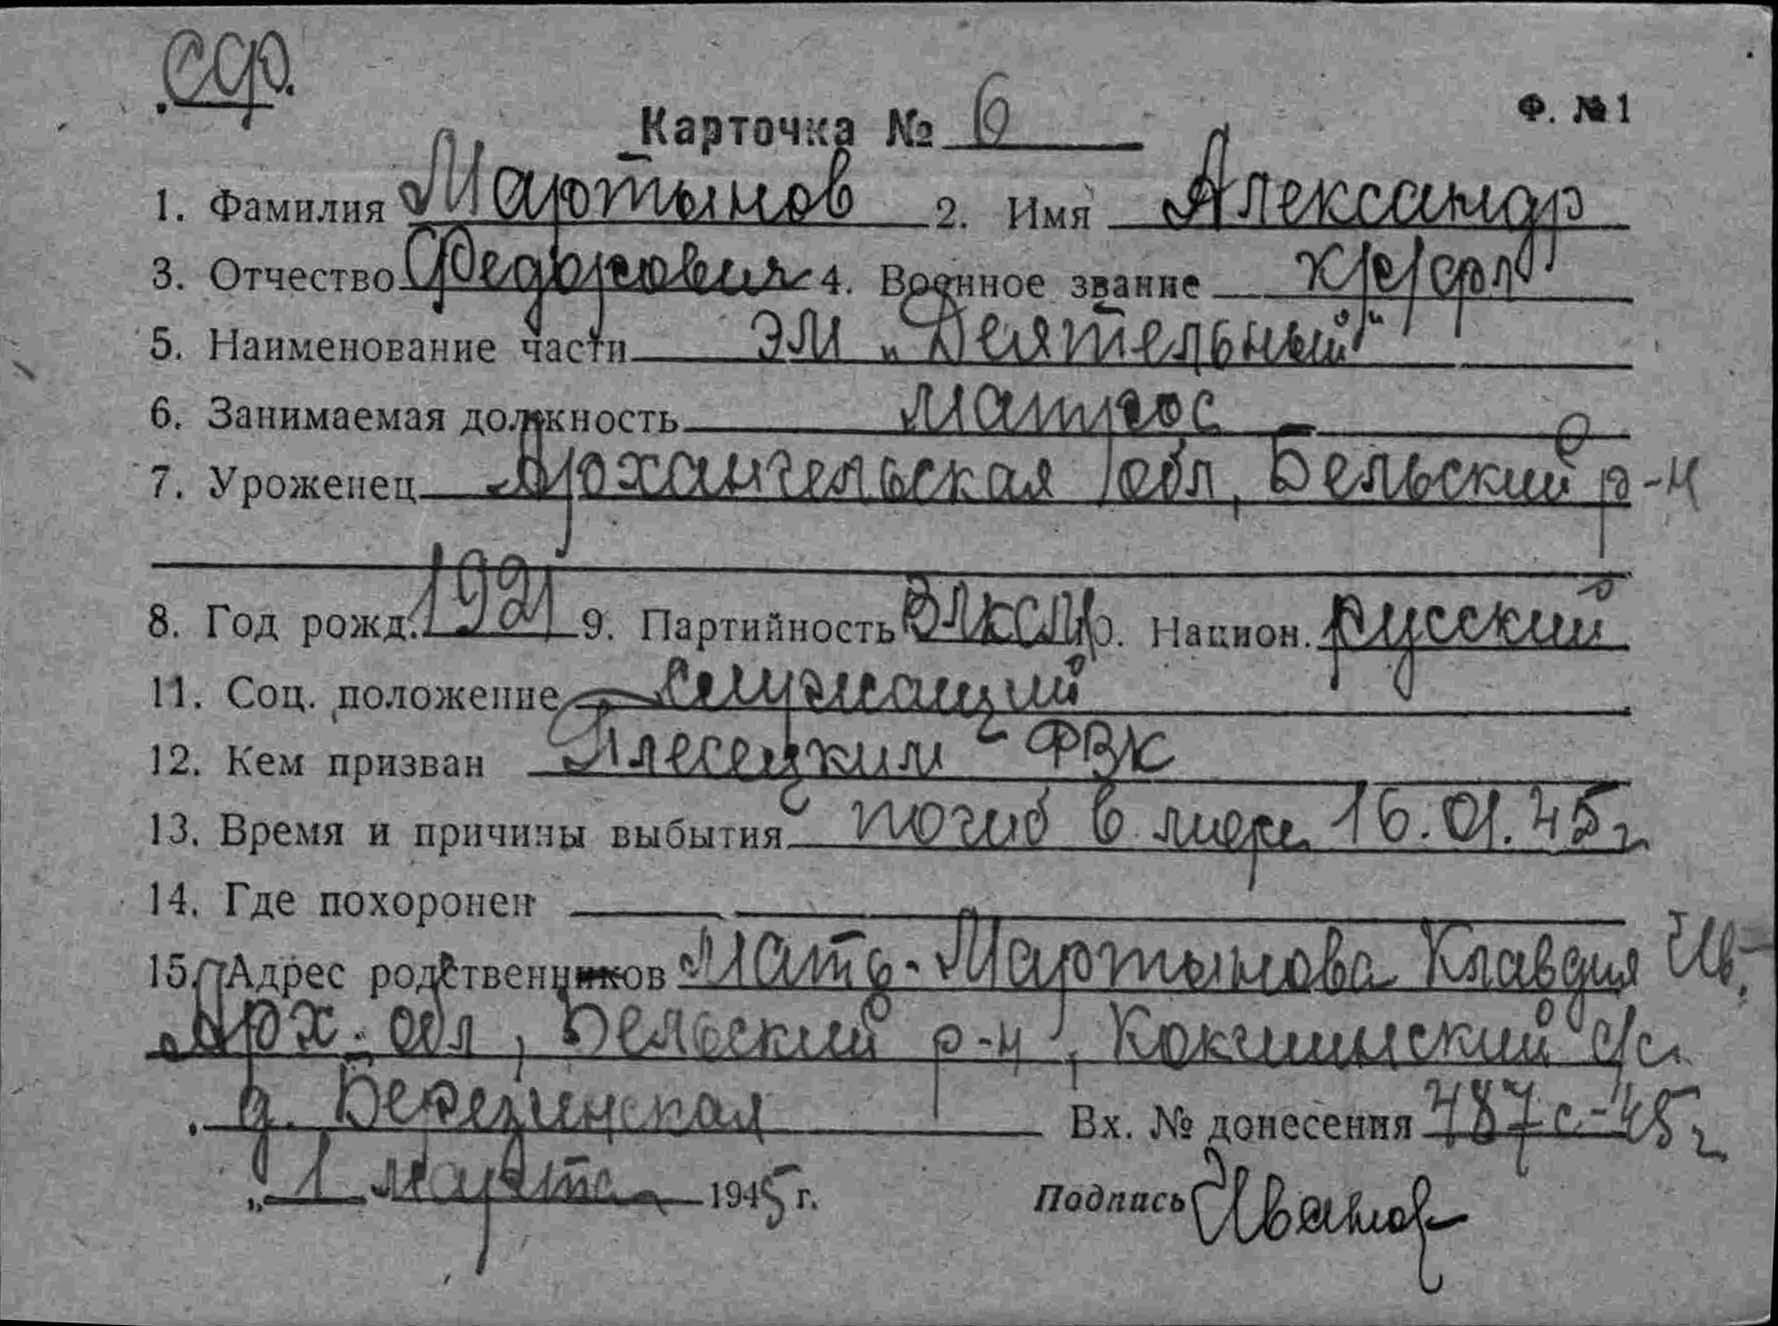 ССФ.
Ф. №1
Карточка № 6
1. Фамилия Мартынов 2. Имя Александр
3. Отчество Федорович 4. Военное звание к/с/фл
5. Наименование части ЭМ „Деятельный"
6. Занимаемая должность матрос
7. Уроженец Архангельская обл, Бельский р-н
8. Год рожд. 1921 9. Партийность ВЛКСМ 10. Национ. русский
11. Соц. положение служащий
12. Кем призван Плесецким - ФВК
13. Время и причины выбытия погиб в море 16.01.45г
14. Где похоронен
15. Адрес родственников Мать - Мартынова Клавдия Ив.
Арх. обл, Бельский р-н, Кокшинский с/с.
д. Березинская Вх. № донесения 787с-45г
„ 1 марта 1945 г. Подпись Иванов